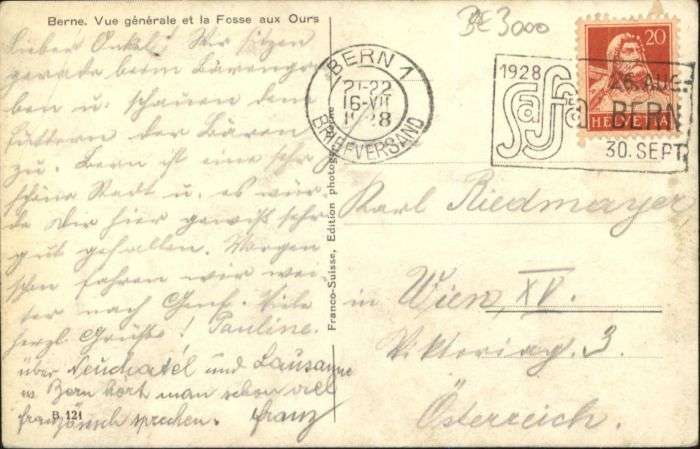 Berne. Vue générale et la Fosse aux Ours
BE 3000
Lieber Onkel! Wir sitzen
gerade beim Bärengra-
ben u. schauen dem
Füttern der Bären
zu. Bern ist eine sehr
schöne Stadt u. es wür-
de Dir hier gewiß sehr
gut gefallen. Morgen
schon fahren wir wei-
ter nach Genf. Viele
herzl. Grüße! Pauline.
über Neuchatél und Lausanne
in Bern hört man schon viel
französisch sprechen. Franz
B. 121
Franco-Suisse, Edition photographique
BERN 1
21-22
16-VII
1928
BRIEFVERSAND
1928
Saffa
26. AUG.
BERN
30. SEPT.
20
HELVETIA
Karl Riedmayer
in Wien, XV.
Viktoriag. 3.
Österreich.